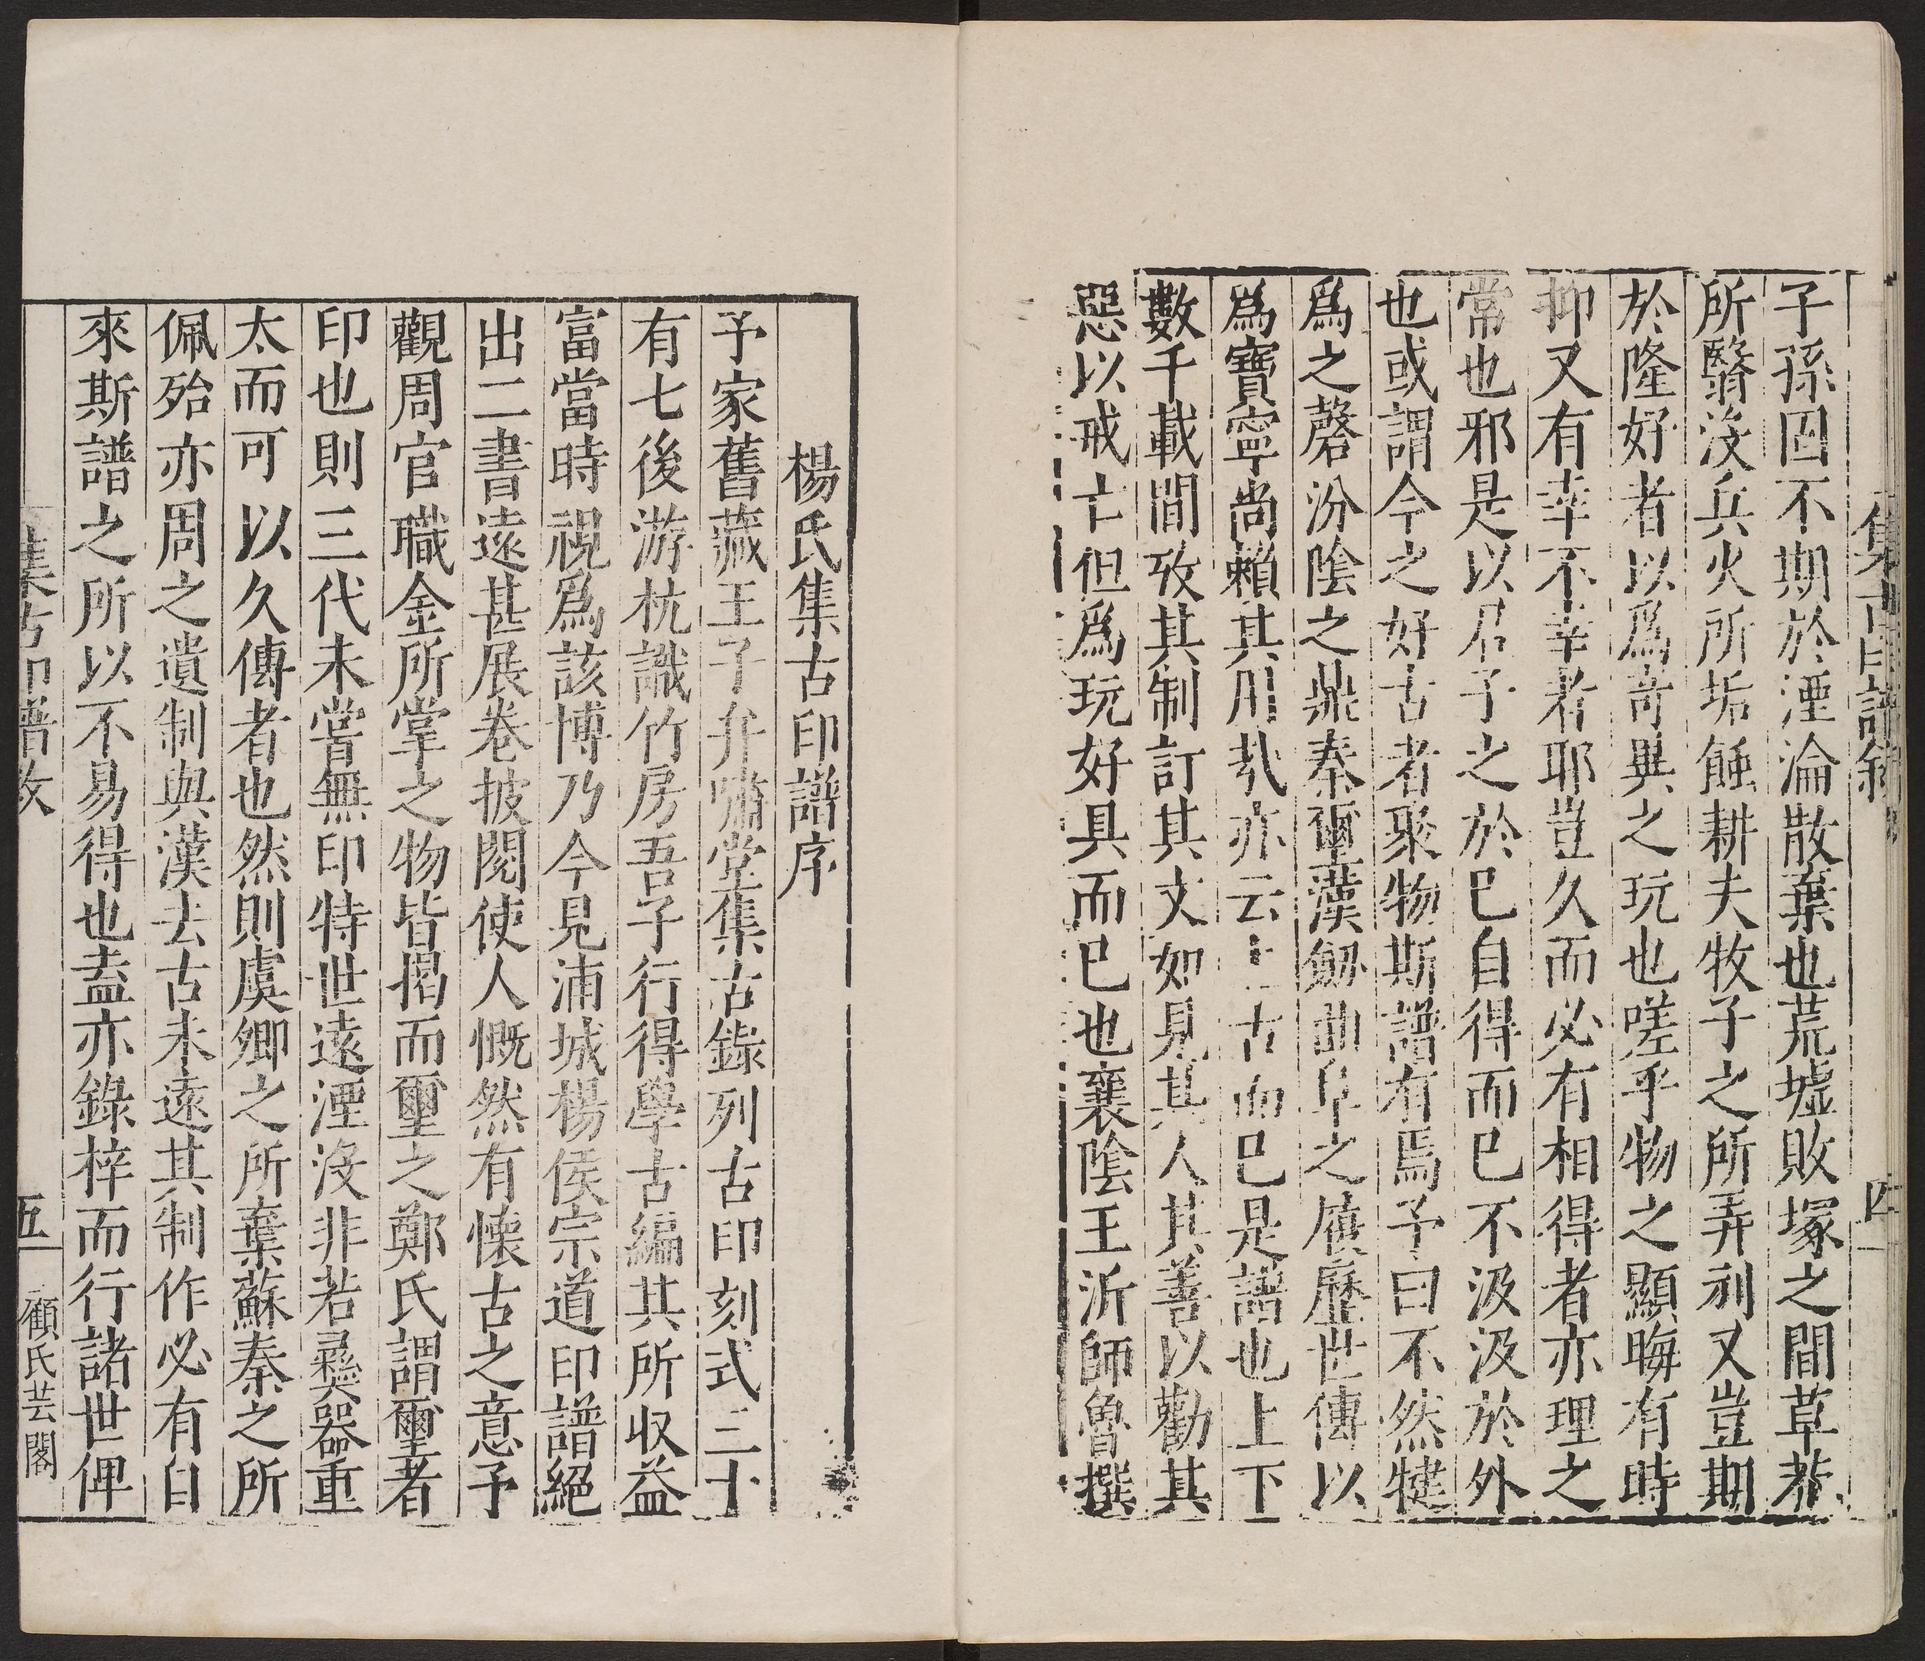 集古印譜敘 四
子孫因不期於湮淪散棄也荒墟敗塚之間草莽
所翳沒兵火所垢蝕耕夫牧子之所弄刓又豈期
於隆好者以爲奇異之玩也嗟乎物之顯晦有時
抑又有幸不幸者耶豈久而必有相得者亦理之
常也邪是以君子之於巳自得而巳不汲汲於外
也或謂今之好古者聚物斯譜有焉予曰不然犍
爲之磬汾陰之鼎秦璽漢劒曲阜之履歷世傳以
爲寶寧尚賴其用哉亦云上古而巳是譜也上下
數千載間攷其制訂其文如見其人其善以勸其
惡以戒亡但爲玩好具而巳也襄陰王沂師魯撰
楊氏集古印譜序
予家舊藏王子弁嘯堂集古錄列古印刻式三十
有七後游杭識竹房吾子行得學古編其所收益
富當時視爲該博乃今見浦城楊侯宗道印譜絕
出二書遠甚展卷披閱使人慨然有懷古之意予
觀周官職金所掌之物皆揭而璽之鄭氏謂璽者
印也則三代未嘗無印特世遠湮沒非若彞器重
太而可以久傳者也然則虞卿之所棄蘇秦之所
佩殆亦周之遺制與漢去古未遠其制作必有自
來斯譜之所以不易得也盍亦錄梓而行諸世俾
集古印譜敘 五 顧氏芸閣